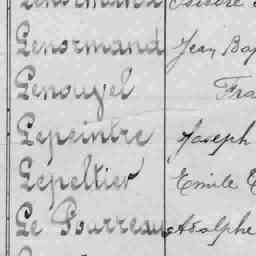 Lenormand Jean Bap
Lenougel Fra
Lepeintre Joseph
Lepeltier Emile
Le Pourreau Adolphe